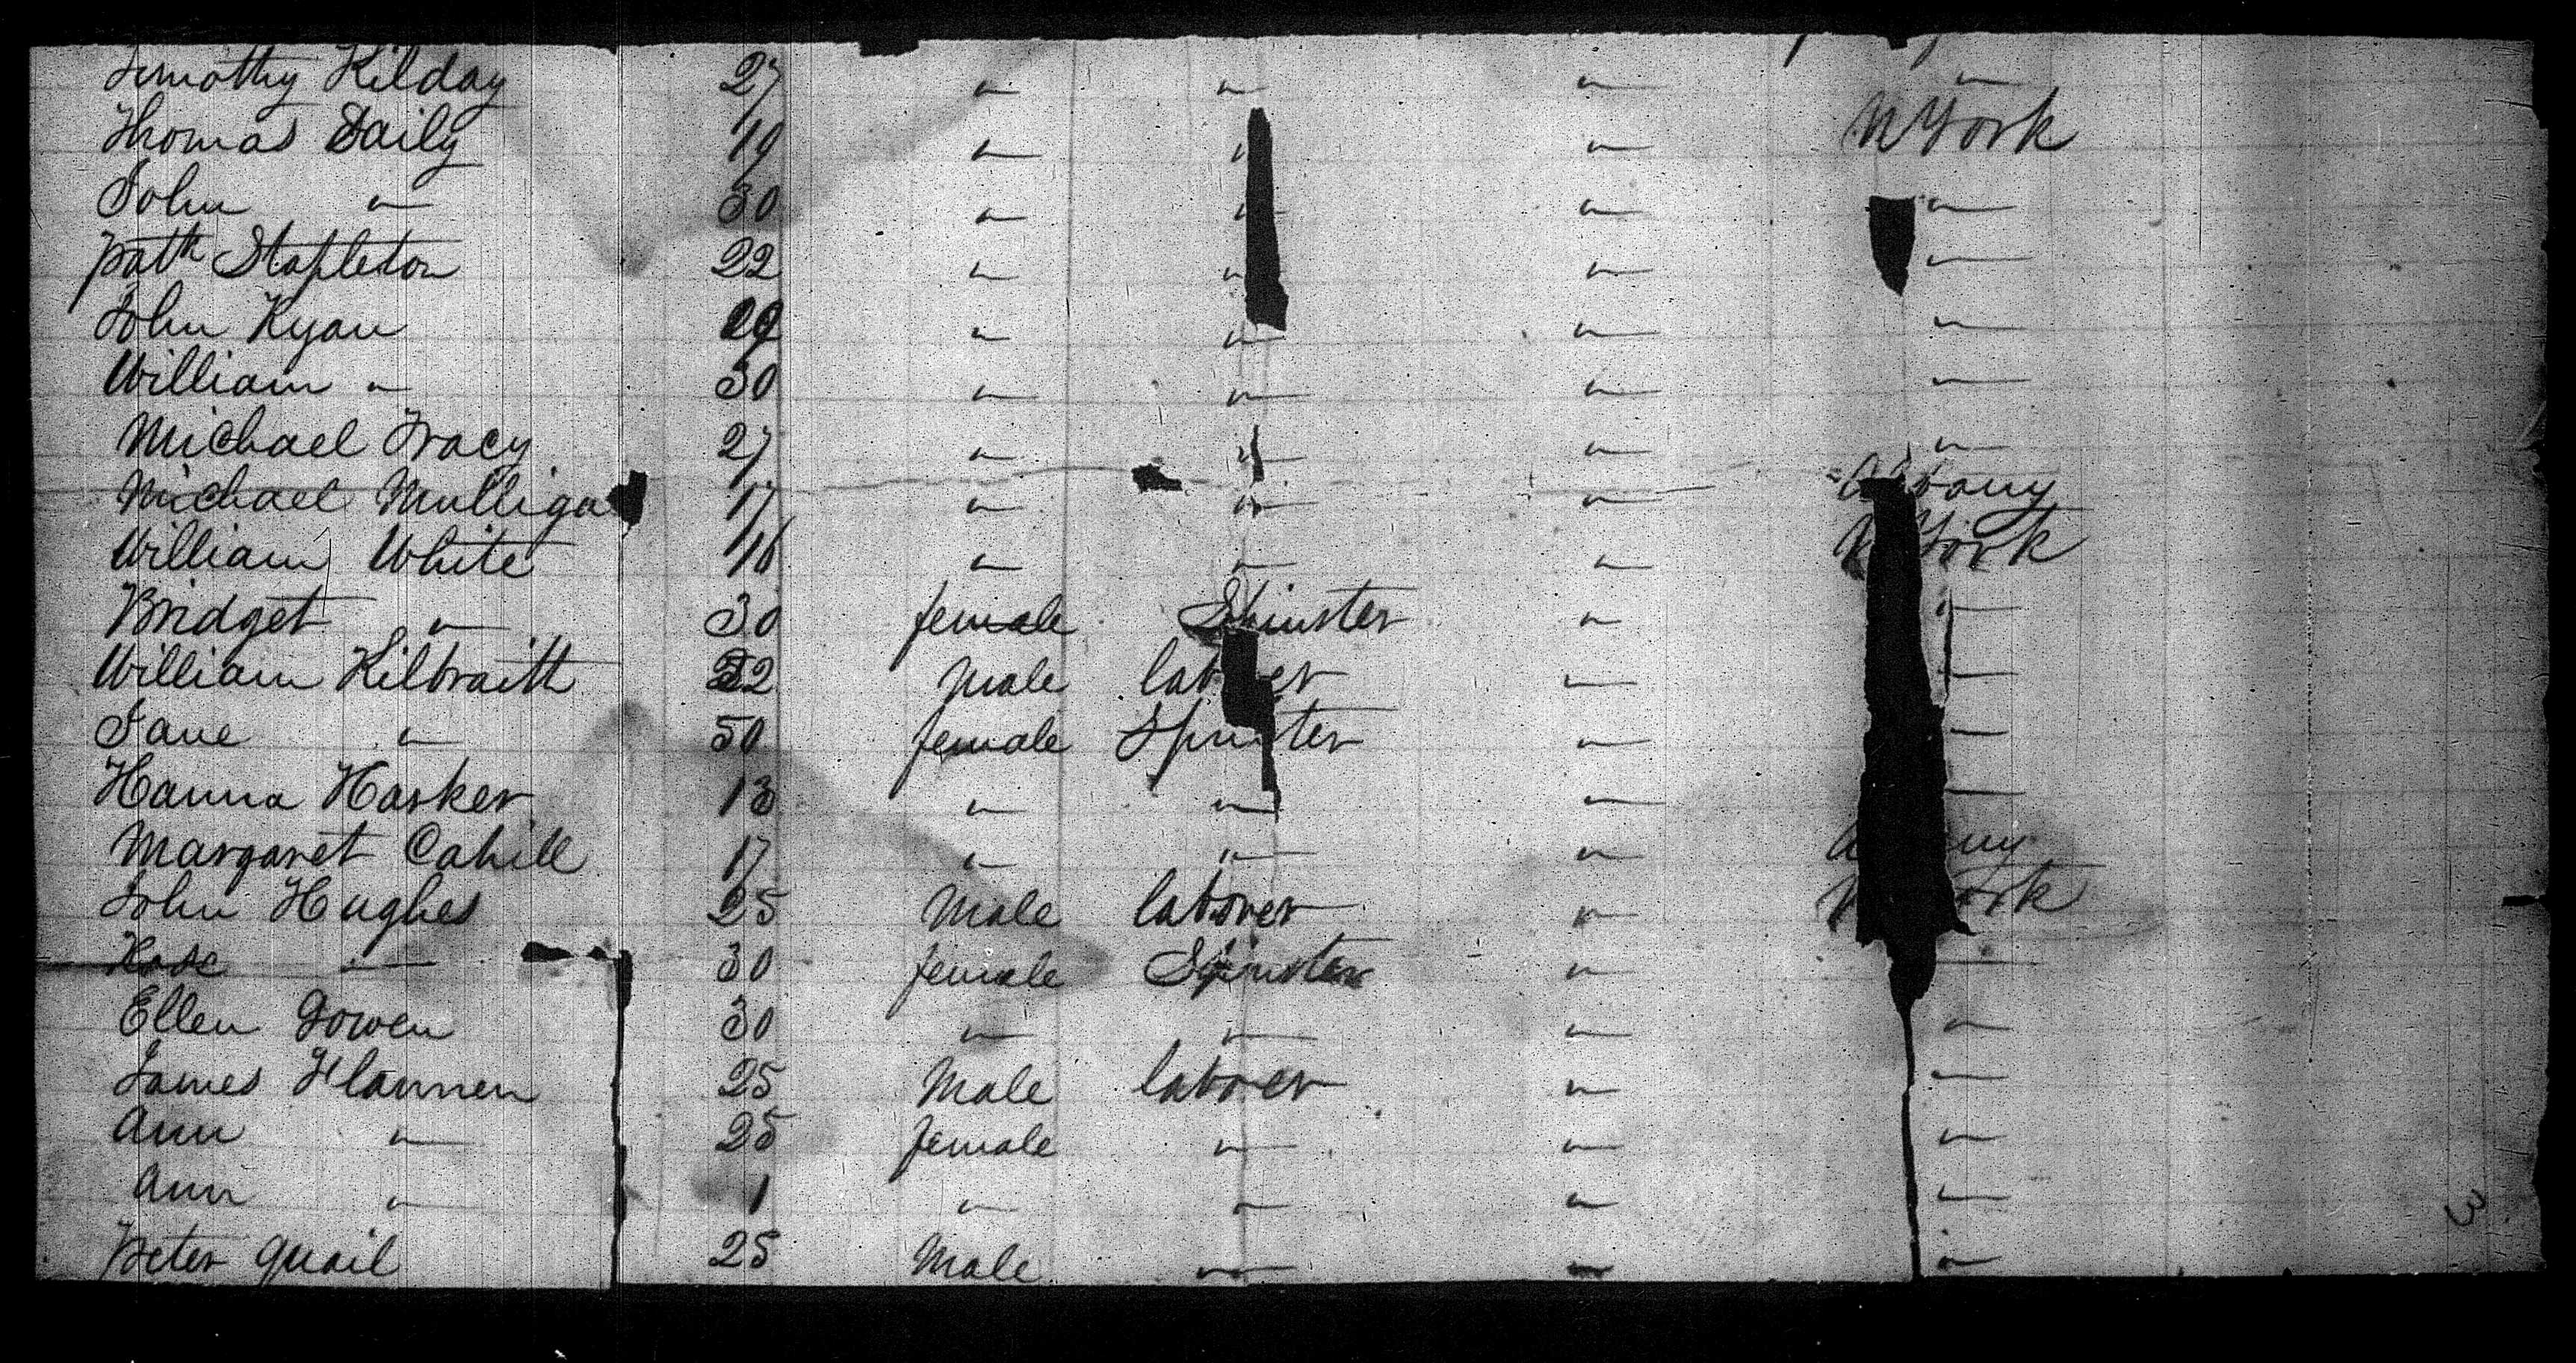 Timothy Kilday 27 " " " "
Thomas Daily 19 " " " N York
John " 30 " " " "
Patk Stapleton 22 " " " "
John Ryan 29 " " " "
William " 30 " " " "
Michael Tracy 27 " " " "
Michael Mulliga 17 " " " Albany
William White 16 " " " N York
Bridget " 30 female Spinster " "
William Kilbraith 32 Male laborer " "
Jane " 50 female Spinster " "
Hanna Harker 13 " " " "
Margaret Cahill 17 " " " A ny
John Hughes 25 Male laborer " N ork
Rose " 30 female Spinster " "
Ellen Gowen 30 " " " "
James Flannen 25 Male laborer " "
Ann " 25 female " " "
Ann " 1 " " " "
Peter Quail 25 Male " " "
3